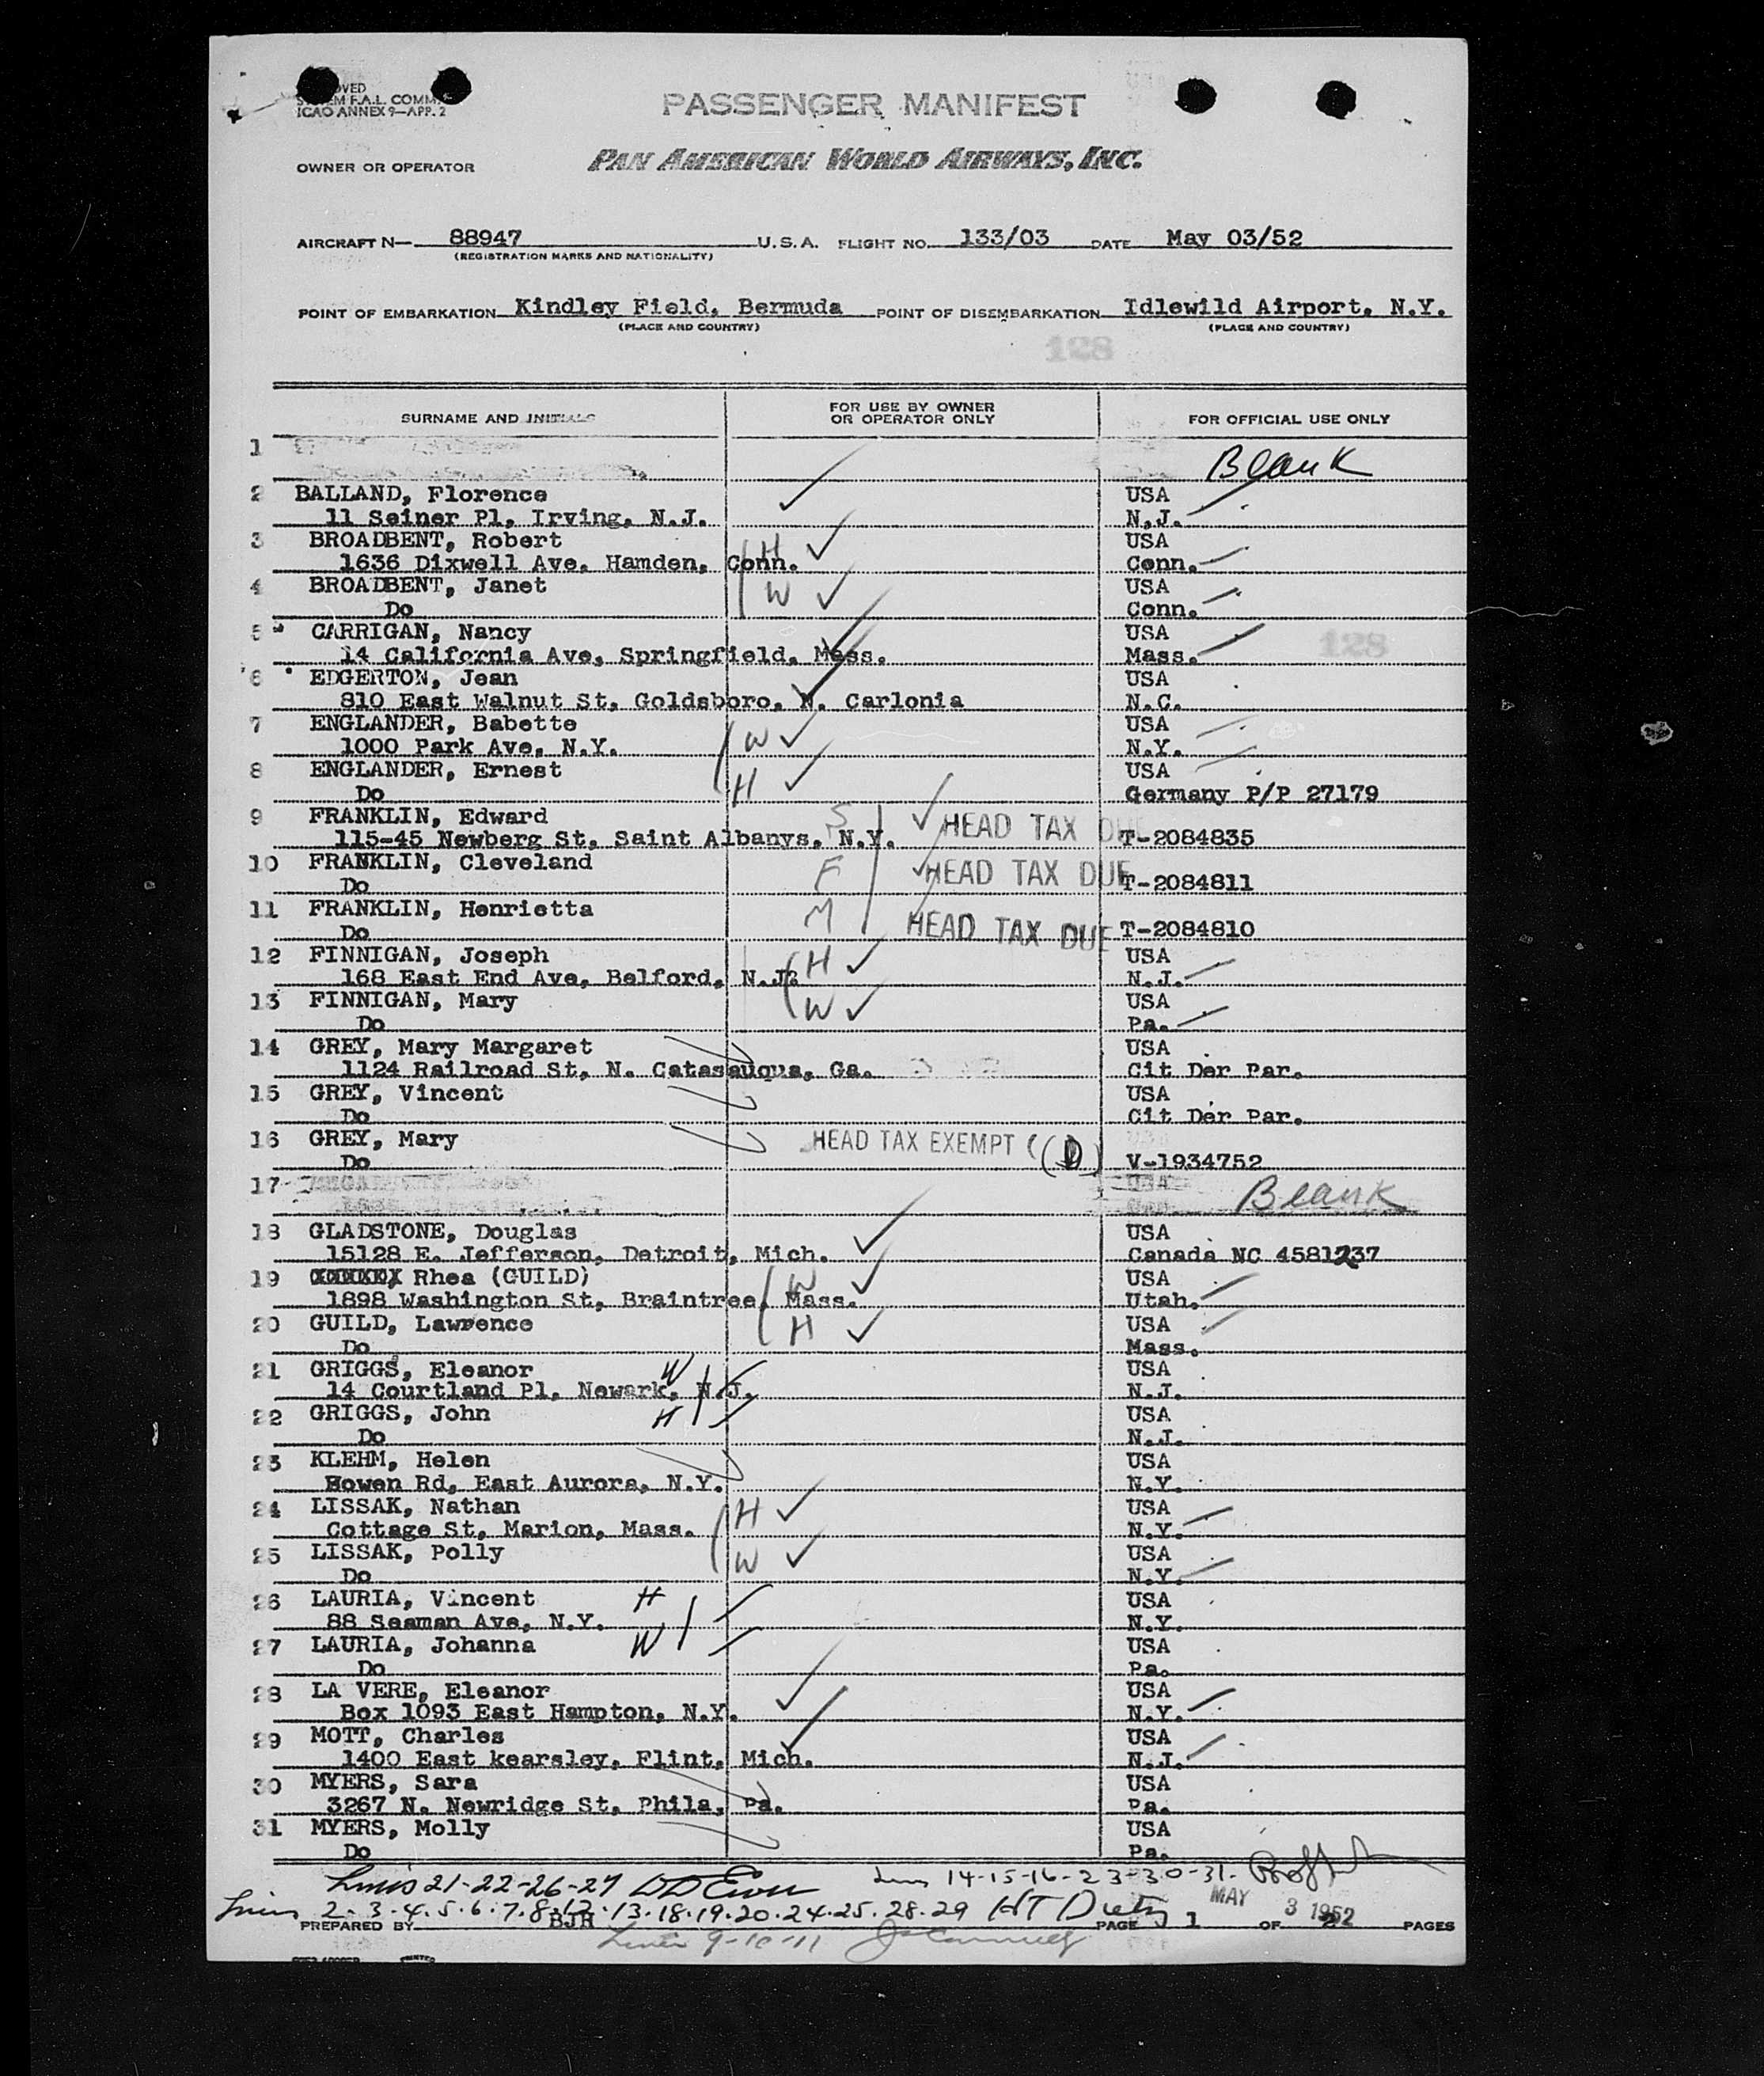 OVED
M F.A.L. COMM.
ICAO ANNEX 9—APP. 2
PASSENGER MANIFEST
OWNER OR OPERATOR PAN AMERICAN WORLD AIRWAYS, INC.
AIRCRAFT N— 88947 U.S.A. FLIGHT NO. 133/03 DATE May 03/52
(REGISTRATION MARKS AND NATIONALITY)
POINT OF EMBARKATION Kindley Field, Bermuda POINT OF DISEMBARKATION Idlewild Airport, N.Y.
(PLACE AND COUNTRY) (PLACE AND COUNTRY)
128
SURNAME AND INITIALS FOR USE BY OWNER OR OPERATOR ONLY FOR OFFICIAL USE ONLY
1 Blank
2 BALLAND, Florence USA
11 Seiner Pl, Irving, N.J. N.J.
3 BROADBENT, Robert H USA
1636 Dixwell Ave, Hamden, Conn. Conn.
4 BROADBENT, Janet W USA
Do Conn.
5 CARRIGAN, Nancy USA 128
14 California Ave, Springfield, Mass. Mass.
6 EDGERTON, Jean USA
810 East Walnut St, Goldsboro, N. Carlonia N.C.
7 ENGLANDER, Babette W USA
1000 Park Ave, N.Y. N.Y.
8 ENGLANDER, Ernest H USA
Do Germany P/P 27179
9 FRANKLIN, Edward S HEAD TAX DUE
115-45 Newberg St, Saint Albanys, N.Y. T-2084835
10 FRANKLIN, Cleveland F HEAD TAX DUE
Do T-2084811
11 FRANKLIN, Henrietta M HEAD TAX DUE
Do T-2084810
12 FINNIGAN, Joseph H USA
168 East End Ave, Belford, N.J. N.J.
13 FINNIGAN, Mary W USA
Do Pa.
14 GREY, Mary Margaret USA
1124 Railroad St, N. Catasauqua, Ga. Cit Der Par.
15 GREY, Vincent USA
Do Cit Der Par.
16 GREY, Mary HEAD TAX EXEMPT (D)
Do V-1934752
17 USA Blank
18 GLADSTONE, Douglas USA
15128 E. Jefferson, Detroit, Mich. Canada NC 4581237
19 Rhea (GUILD) W USA
1898 Washington St, Braintree, Mass. Utah.
20 GUILD, Lawrence H USA
Do Mass.
21 GRIGGS, Eleanor W USA
14 Courtland Pl, Newark, N.J. N.J.
22 GRIGGS, John H USA
Do N.J.
23 KLEHM, Helen USA
Bowen Rd, East Aurora, N.Y. N.Y.
24 LISSAK, Nathan H USA
Cottage St, Marion, Mass. N.Y.
25 LISSAK, Polly W USA
Do N.Y.
26 LAURIA, Vincent H USA
88 Seaman Ave, N.Y. N.Y.
27 LAURIA, Johanna W USA
Do Pa.
28 LA VERE, Eleanor USA
Box 1093 East Hampton, N.Y. N.Y.
29 MOTT, Charles USA
1400 East kearsley, Flint, Mich. N.J.
30 MYERS, Sara USA
3267 N. Newridge St, Phila, Pa. Pa.
31 MYERS, Molly USA
Do Pa.
Lines 21-22-26-27 14-15-16-23-30-31.
Lines 2-3-4-5-6-7-8-12-13-18-19-20-24-25-28-29 MAY 3 1952
PREPARED BY BJR PAGE 1 OF 2 PAGES
Lines 9-10-11